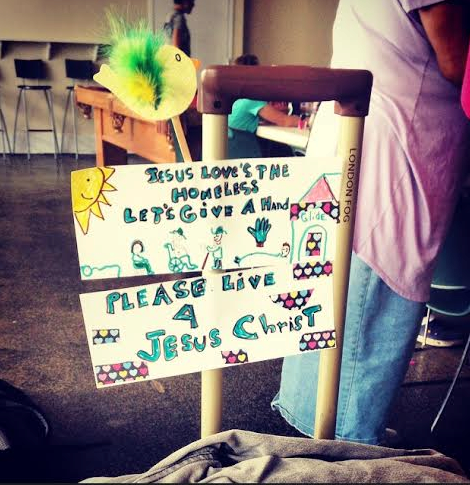 JESUS LOVE'S THE
HOMELESS
LET'S GIVE A HAND
Glide
PLEASE LIVE
A
JESUS CHRIST
LONDON FOG